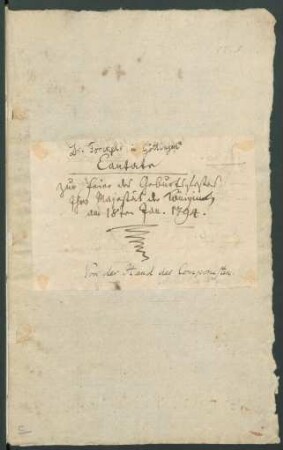 Dr. Forkels in Göttingen
Cantate
zur Feier des Geburtsfestes
Ihro Majestät der Königin
am 18ten Jan. 1794.
Von der Hand des Componisten